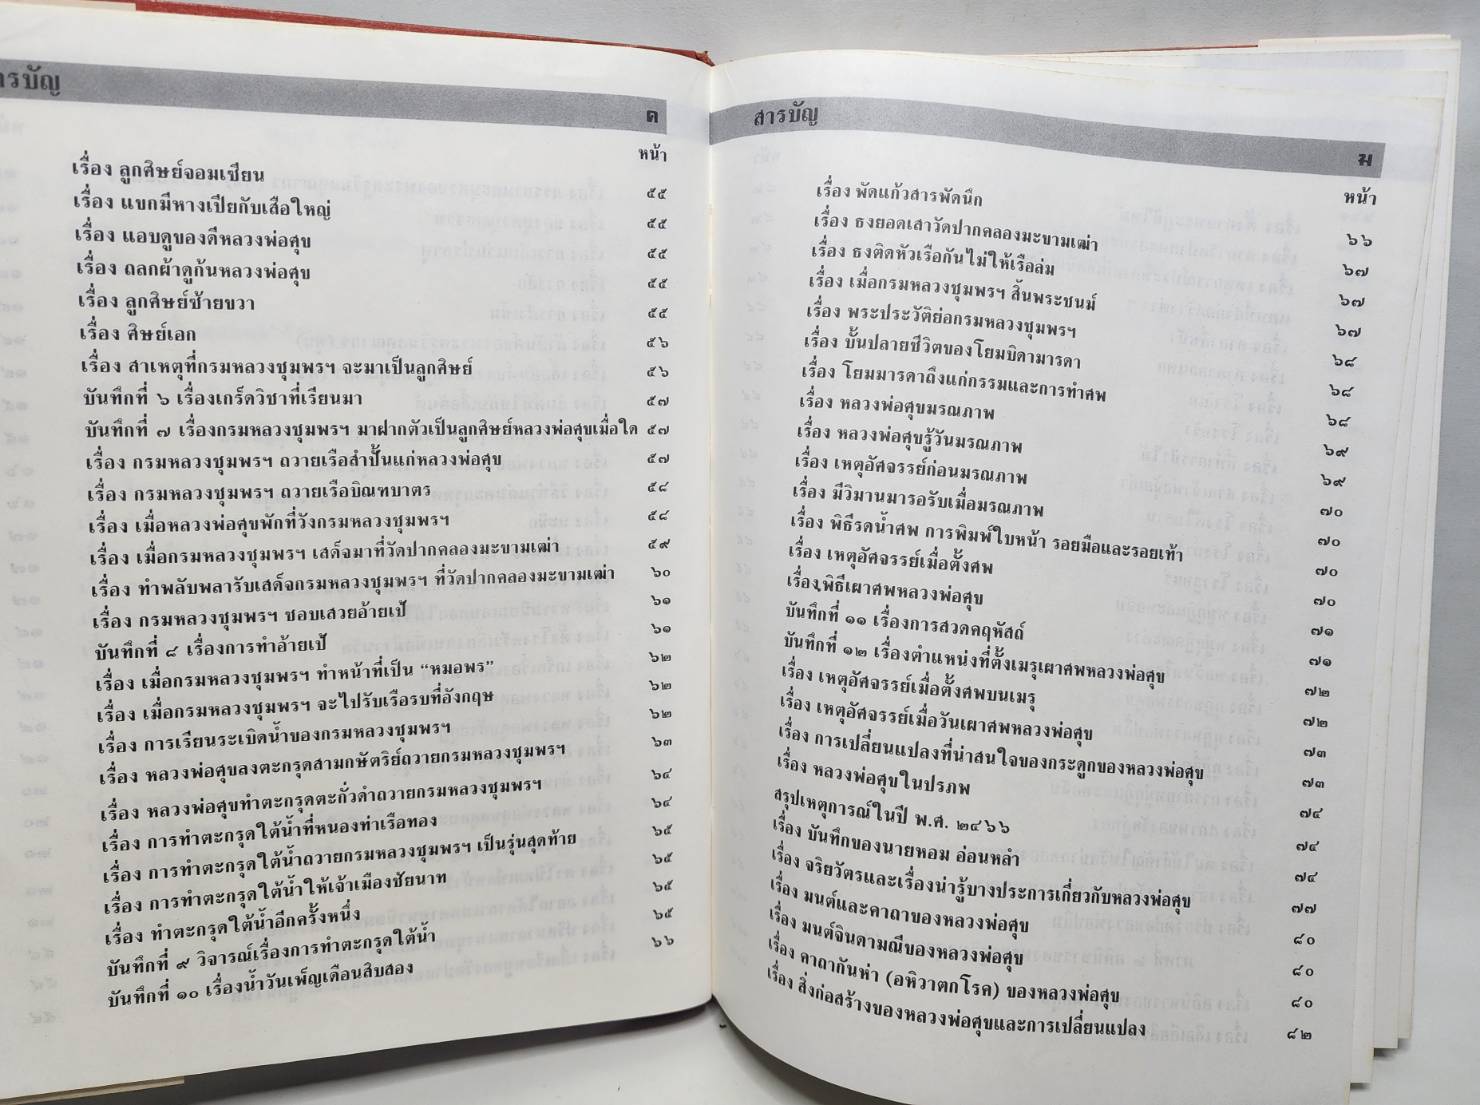 ารบัญ ค
หน้า
เรื่อง ลูกศิษย์จอมเซียน ๕๕
เรื่อง แขกมีหางเปียกับเสือใหญ่ ๕๕
เรื่อง แอบดูของดีหลวงพ่อศุข ๕๕
เรื่อง ถลกผ้าดูก้นหลวงพ่อศุข ๕๕
เรื่อง ลูกศิษย์ซ้ายขวา ๕๕
เรื่อง ศิษย์เอก ๕๖
เรื่อง สาเหตุที่กรมหลวงชุมพรฯ จะมาเป็นลูกศิษย์ ๕๖
บันทึกที่ ๖ เรื่องเกร็ดวิชาที่เรียนมา ๕๗
บันทึกที่ ๗ เรื่องกรมหลวงชุมพรฯ มาฝากตัวเป็นลูกศิษย์หลวงพ่อศุขเมื่อใด ๕๗
เรื่อง กรมหลวงชุมพรฯ ถวายเรือสำปั้นแก่หลวงพ่อศุข ๕๗
เรื่อง กรมหลวงชุมพรฯ ถวายเรือบิณฑบาตร ๕๘
เรื่อง เมื่อหลวงพ่อศุขพักที่วังกรมหลวงชุมพรฯ ๕๘
เรื่อง เมื่อกรมหลวงชุมพรฯ เสด็จมาที่วัดปากคลองมะขามเฒ่า ๕๙
เรื่อง ทำพลับพลารับเสด็จกรมหลวงชุมพรฯ ที่วัดปากคลองมะขามเฒ่า ๖๐
เรื่อง กรมหลวงชุมพรฯ ชอบเสวยอ้ายเป้ ๖๑
บันทึกที่ ๘ เรื่องการทำอ้ายเป้ ๖๑
เรื่อง เมื่อกรมหลวงชุมพรฯ ทำหน้าที่เป็น “หมอพร” ๖๒
เรื่อง เมื่อกรมหลวงชุมพรฯ จะไปรับเรือรบที่อังกฤษ ๖๒
เรื่อง การเรียนระเบิดน้ำของกรมหลวงชุมพรฯ ๖๒
เรื่อง หลวงพ่อศุขลงตะกรุดสามกษัตริย์ถวายกรมหลวงชุมพรฯ ๖๓
เรื่อง หลวงพ่อศุขทำตะกรุดตะกั่วดำถวายกรมหลวงชุมพรฯ ๖๔
เรื่อง การทำตะกรุดใต้น้ำที่หนองท่าเรือทอง ๖๔
เรื่อง การทำตะกรุดใต้น้ำถวายกรมหลวงชุมพรฯ เป็นรุ่นสุดท้าย ๖๕
เรื่อง การทำตะกรุดใต้น้ำให้เจ้าเมืองชัยนาท ๖๕
เรื่อง ทำตะกรุดใต้น้ำอีกครั้งหนึ่ง ๖๕
บันทึกที่ ๙ วิจารณ์เรื่องการทำตะกรุดใต้น้ำ ๖๕
บันทึกที่ ๑๐ เรื่องน้ำวันเพ็ญเดือนสิบสอง ๖๖
สารบัญ ฆ
หน้า
เรื่อง พัดแก้วสารพัดนึก ๖๖
เรื่อง ธงยอดเสาวัดปากคลองมะขามเฒ่า ๖๗
เรื่อง ธงติดหัวเรือกันไม่ให้เรือล่ม ๖๗
เรื่อง เมื่อกรมหลวงชุมพรฯ สิ้นพระชนม์ ๖๗
เรื่อง พระประวัติย่อกรมหลวงชุมพรฯ ๖๘
เรื่อง บั้นปลายชีวิตของโยมบิดามารดา ๖๘
เรื่อง โยมมารดาถึงแก่กรรมและการทำศพ ๖๘
เรื่อง หลวงพ่อศุขมรณภาพ ๖๙
เรื่อง หลวงพ่อศุขรู้วันมรณภาพ ๖๙
เรื่อง เหตุอัศจรรย์ก่อนมรณภาพ ๗๐
เรื่อง มีวิมานมารอรับเมื่อมรณภาพ ๗๐
เรื่อง พิธีรดน้ำศพ การพิมพ์ใบหน้า รอยมือและรอยเท้า ๗๐
เรื่อง เหตุอัศจรรย์เมื่อตั้งศพ ๗๐
เรื่อง พิธีเผาศพหลวงพ่อศุข ๗๑
บันทึกที่ ๑๑ เรื่องการสวดคฤหัสถ์ ๗๑
บันทึกที่ ๑๒ เรื่องตำแหน่งที่ตั้งเมรุเผาศพหลวงพ่อศุข ๗๒
เรื่อง เหตุอัศจรรย์เมื่อตั้งศพบนเมรุ ๗๒
เรื่อง เหตุอัศจรรย์เมื่อวันเผาศพหลวงพ่อศุข ๗๓
เรื่อง การเปลี่ยนแปลงที่น่าสนใจของกระดูกของหลวงพ่อศุข ๗๓
เรื่อง หลวงพ่อศุขในปรภพ ๗๔
สรุปเหตุการณ์ในปี พ.ศ. ๒๔๖๖ ๗๔
เรื่อง บันทึกของนายหอม อ่อนหลำ ๗๔
เรื่อง จริยวัตรและเรื่องน่ารู้บางประการเกี่ยวกับหลวงพ่อศุข ๗๗
เรื่อง มนต์และคาถาของหลวงพ่อศุข ๘๐
เรื่อง มนต์จินดามณีของหลวงพ่อศุข ๘๐
เรื่อง คาถากันห่า (อหิวาตกโรค) ของหลวงพ่อศุข ๘๐
เรื่อง สิ่งก่อสร้างของหลวงพ่อศุขและการเปลี่ยนแปลง ๘๒